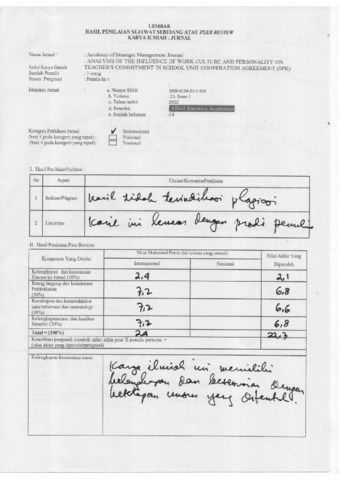 LEMBAR
HASIL PENILAIAN SEJAWAT SEBIDANG ATAU PEER REVIEW
KARYA ILMIAH : JURNAL
Nama Jurnal : Academy of Strategic Management Journal
: ANALYSIS OF THE INFLUENCE OF WORK CULTURE AND PERSONALITY ON
Judul Karya Ilmiah TEACHER'S COMMITMENT IN SCHOOL UNIT COOPERATION AGREEMENT (SPK)
Jumlah Penulis :
Status Pengusul : Penulis ke 1
Identitas Jurnal : a. Nomor ISSN
b. Volume : 21, Issue 1
c. Tahun terbit : 2022
d. Penerbit : Allied Business Academies
e. Jumlah halaman : 14
Kategori Publikasi Jurnal : ✓ Internasional
Nasional
Nasional
I. Hasil Penilaian Validasi :
No Aspek Uraian/Komentar Penilaian
1 Indikasi Plagiasi Hasil tidak terindikasi plagiasi
2 Linearitas Karil ini linear dengan prodi
II. Hasil Penilaian Peer Review:
Komponen Yang Dinilai Nilai Akhir Yang Diperoleh
Internasional Nasional
Kelengkapan dan kesesuaian unsur isi Jurnal (10%) 2,4 2,1
Ruang lingkup dan kedalaman Pembahasan (30%) 7,2 6,8
Kecukupan dan kemutakhiran data/informasi dan metodologi (30%) 7,2 6,6
Kelengkapan unsur dan kualitas Penerbit (30%) 7,2 6,8
Total = (100%) 24 22,3
Kelengkapan kesesuaian unsur
Karya ilmiah ini memiliki
kelengkapan dan kesesuaian dengan
ketetapan unsur yang